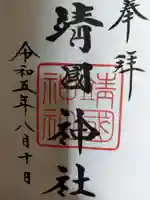 奉拝
靖國神社
令和五年八月十日
靖國神社